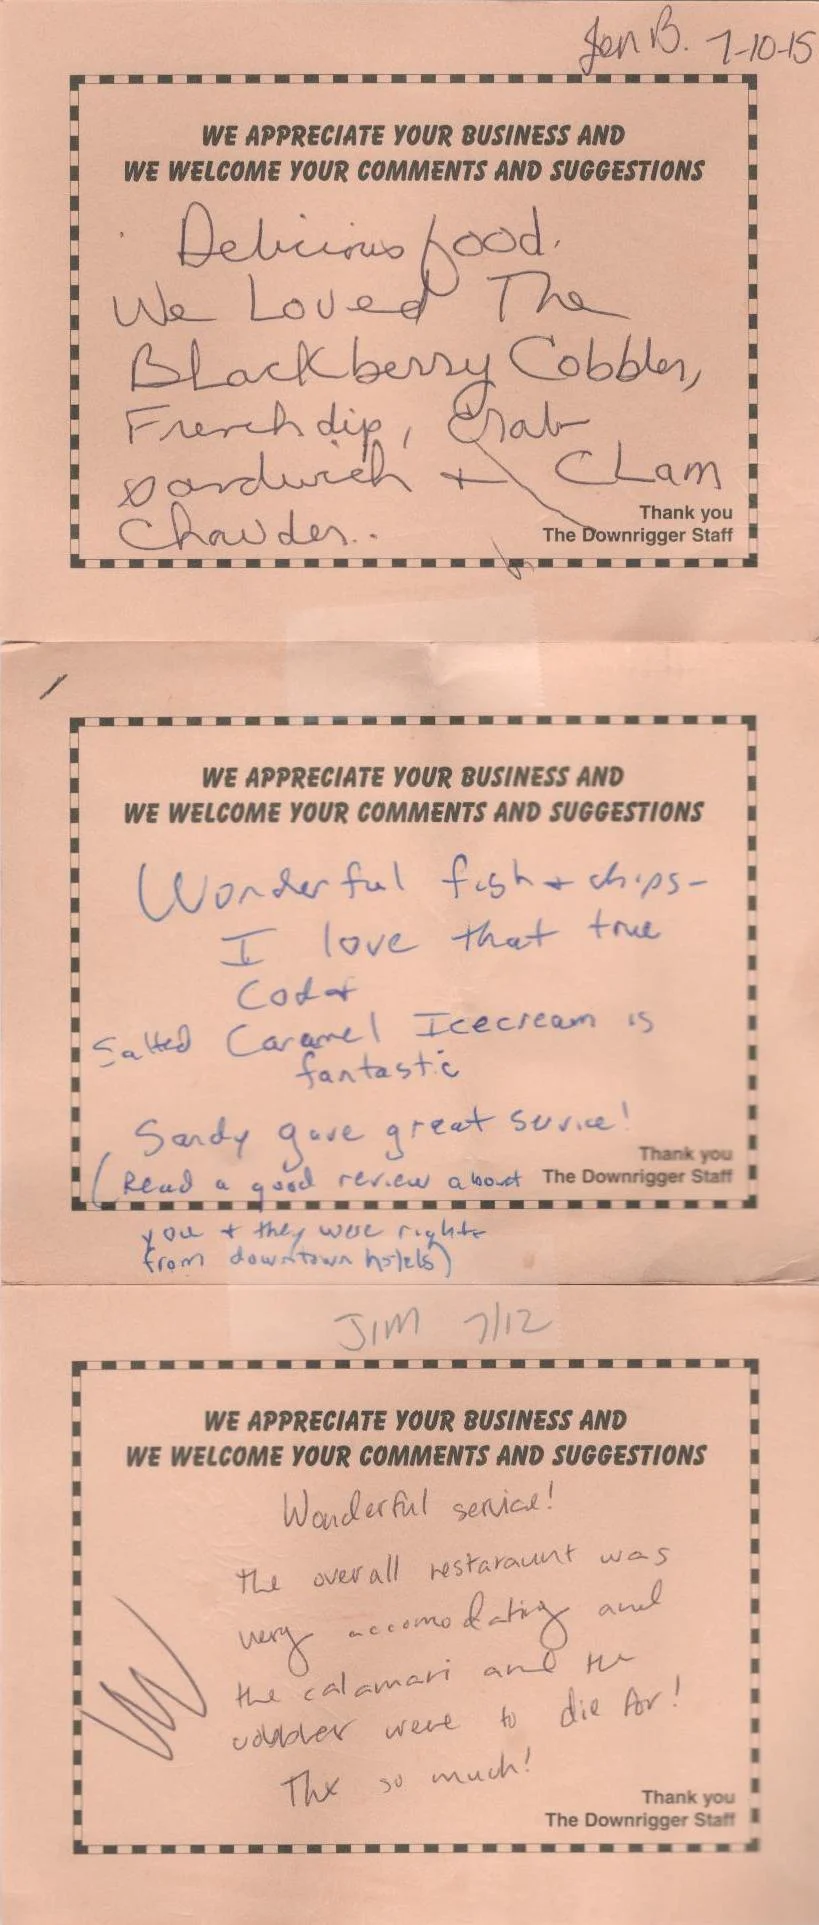 Jen B. 7-10-15
WE APPRECIATE YOUR BUSINESS AND
WE WELCOME YOUR COMMENTS AND SUGGESTIONS
Delicious food.
We Loved The
Blackberry Cobbler,
French dip, Crab
Sandwich + CLam
Chowder..
Thank you
The Downrigger Staff
WE APPRECIATE YOUR BUSINESS AND
WE WELCOME YOUR COMMENTS AND SUGGESTIONS
Wonderful fish + chips-
I love that true
Cod +
Salted Caramel Icecream is
fantastic
Sandy gave great service!
(Read a good review about
Thank you
The Downrigger Staff
you + they were right-
from downtown hotels)
JIM 7/12
WE APPRECIATE YOUR BUSINESS AND
WE WELCOME YOUR COMMENTS AND SUGGESTIONS
Wonderful service!
the overall restaraunt was
very accomodating and
the calamari and the
cobbler were to die for!
Thx so much!
Thank you
The Downrigger Staff